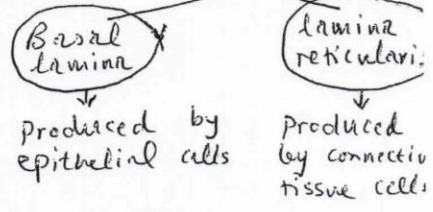 Basal
lamina
produced by
epithelial cells
lamina
reticulari
produced
by connectiv
tissue cells